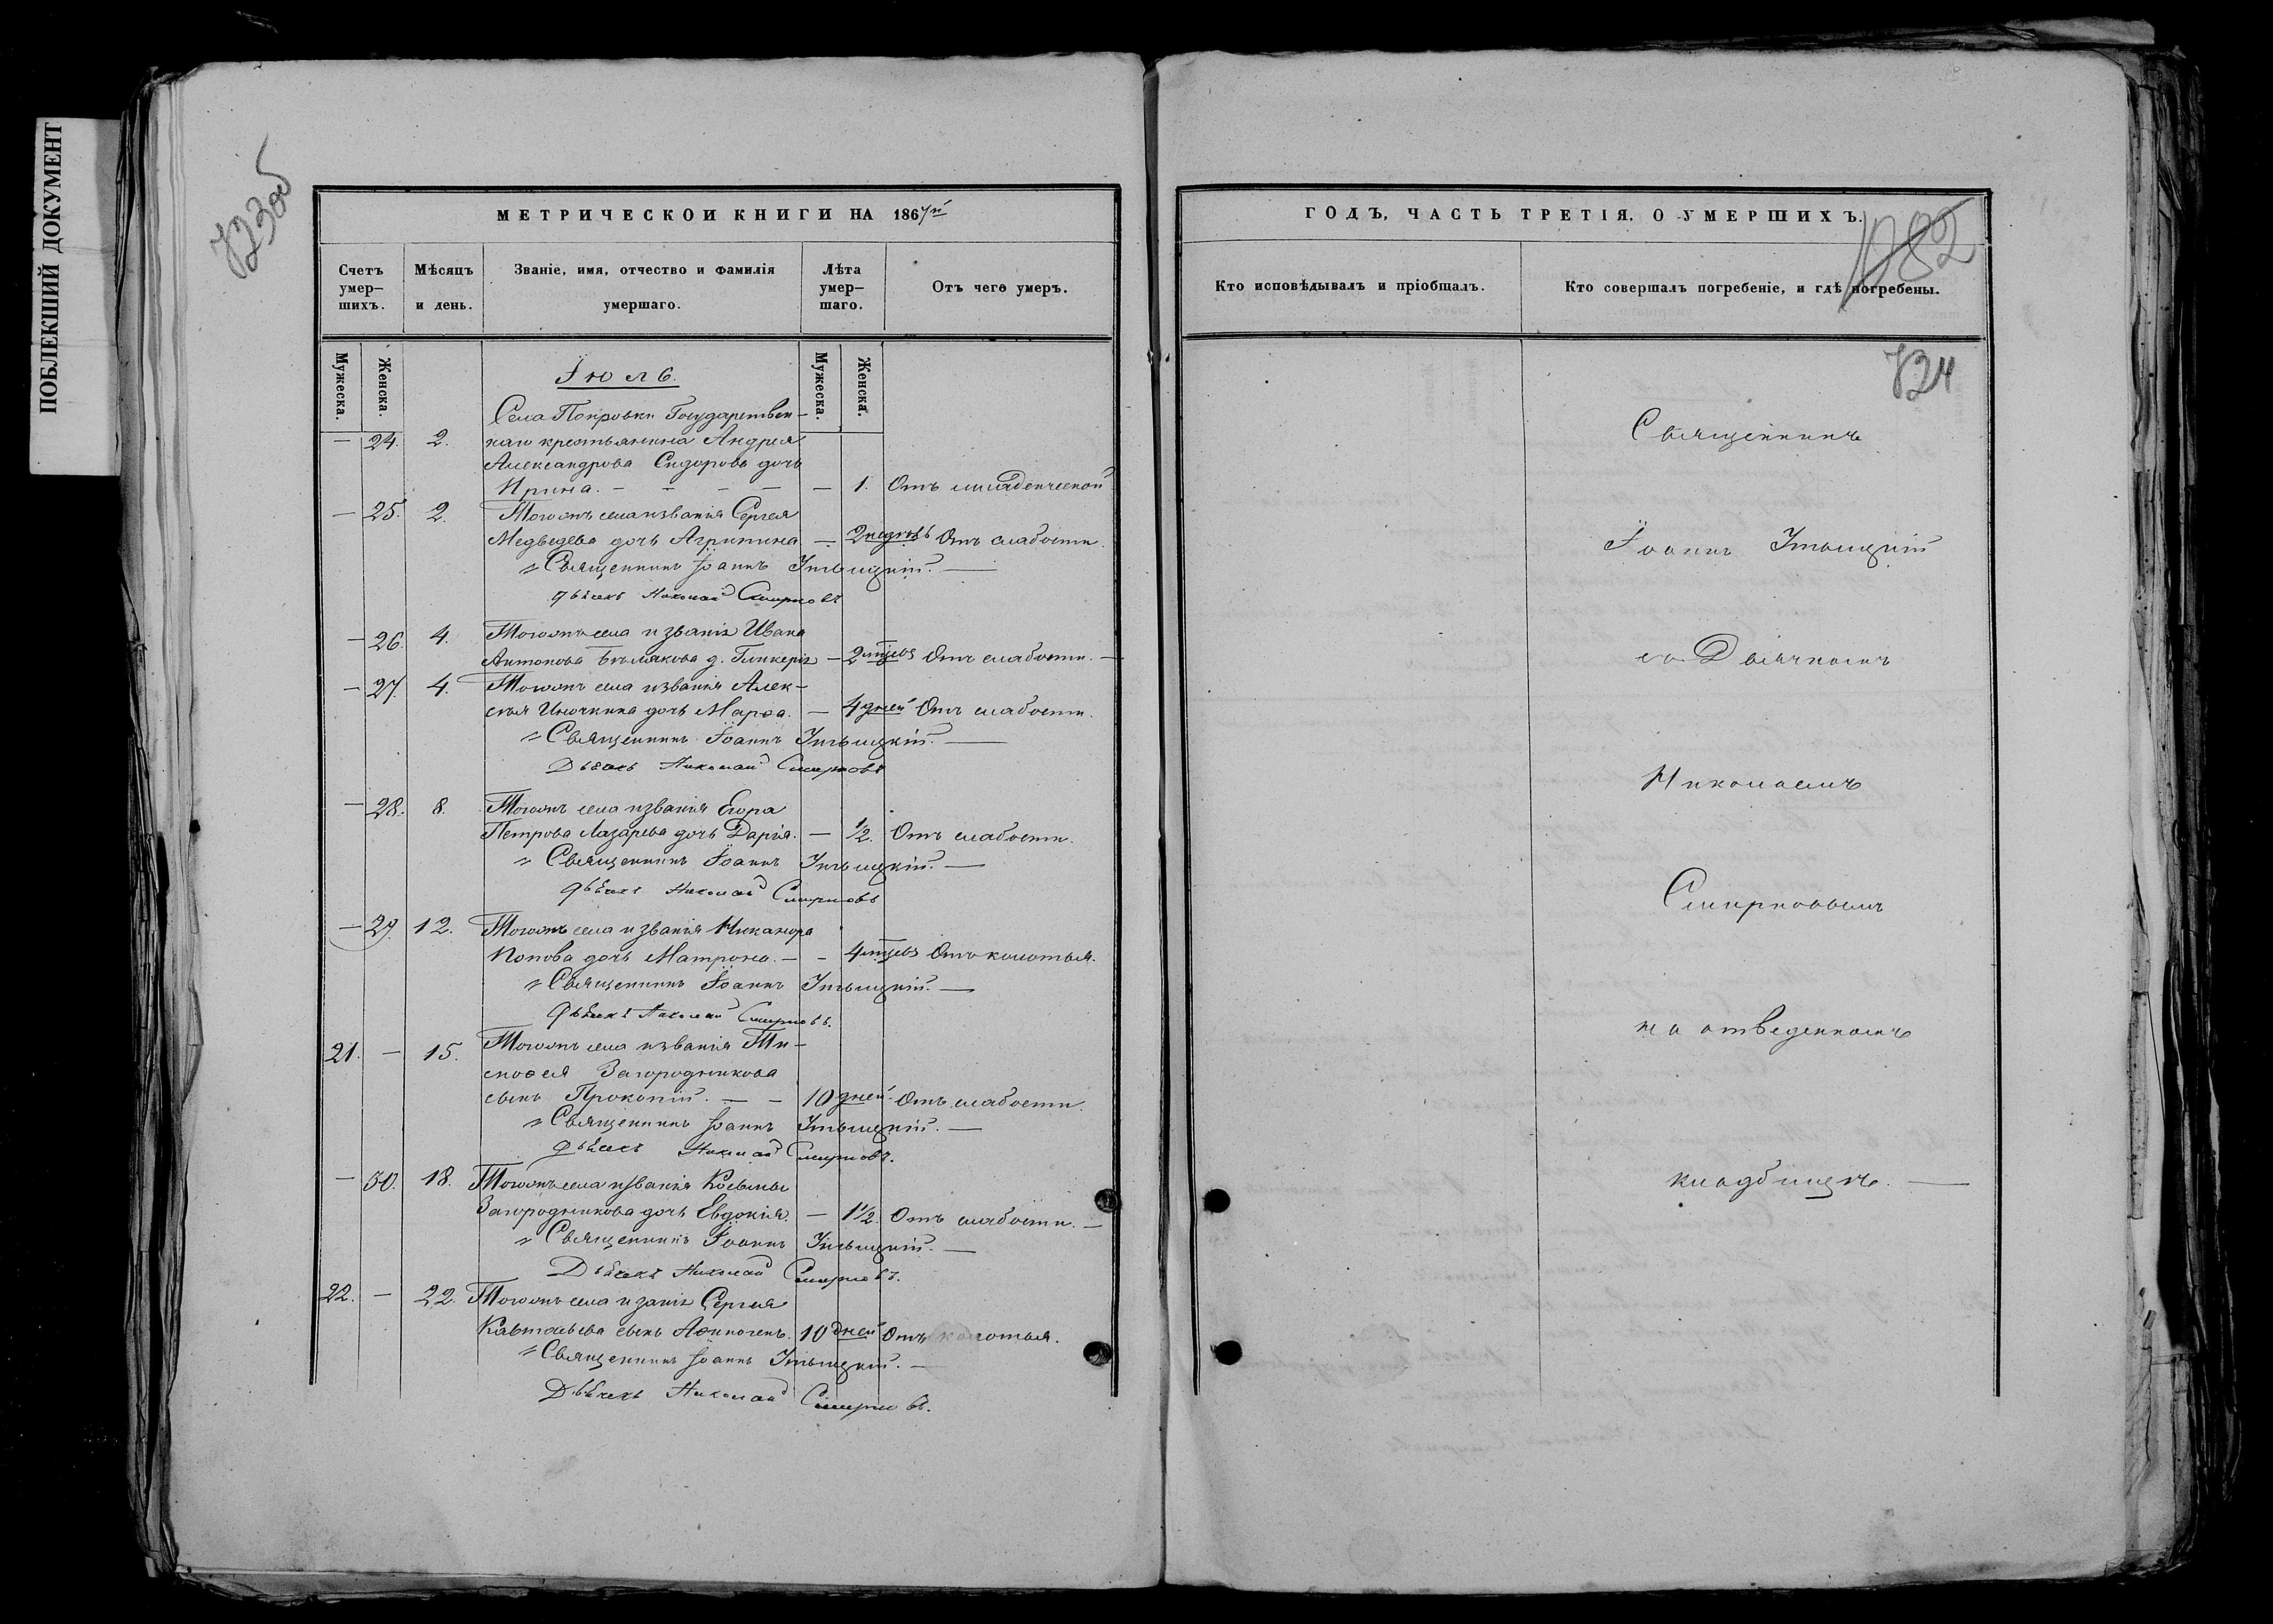 ПОБЛЕКШИЙ ДОКУМЕНТ
723об
МЕТРИЧЕСКОЙ КНИГИ НА 1867й
Счетъ умер-шихъ.
Мѣсяцъ и день.
Званіе, имя, отчество и фамилія умершаго.
Лѣта умер-шаго.
Отъ чего умеръ.
Мужеска.
Женска.
Мужеска.
Женска.
Іюль.
Села Покровки Государствен-
— 24. 2. наго крестьянина Андрея
Александрова Сидорова дочь
Ирина. — — — — — 1. Отъ младенческой
— 25. 2. Тогожъ села и званія Сергея
Медведева дочь Агрипина — 2 недѣль Отъ слабости.
Священникъ Іоаннъ
дьячекъ Николай Смирновъ
— 26. 4. Тогожъ села и званія Ивана
Антонова д. Гликерія — 2 мѣцевъ Отъ слабости. —
— 27. 4. Тогожъ села и званія Алек-
сѣя дочь Марѳа. — 4 дней Отъ слабости.
Священникъ Іоаннъ
Дьячекъ Николай Смирновъ
— 28. 8. Тогожъ села и званія Егора
Петрова Лазарева дочь Дарія. — 1/2. Отъ слабости.
Священникъ Іоаннъ
дьячекъ Николай Смирновъ
— 29. 12. Тогожъ села и званія Никанора
Попова дочь Матрона. — — 4 мѣцевъ Отъ колотья.
Священникъ Іоаннъ
дьячекъ Николай Смирновъ.
21. — 15. Тогожъ села и званія Ти-
моѳея Загородникова
сынъ Прокопій. — — 10 дней. Отъ слабости.
Священникъ Іоаннъ
дьячекъ Николай Смирновъ.
— 30. 18. Тогожъ села и званія Косьмы
Загородникова дочь Евдокія. — 1 1/2. Отъ слабости. —
Священникъ Іоаннъ
Дьячекъ Николай Смирновъ.
22. — 22. Тогожъ села и заніе Сергея
сынъ Аѳиногенъ. 10 дней Отъ колотья.
Священникъ Іоаннъ
Дьячекъ Николай Смирновъ.
ГОДЪ, ЧАСТЬ ТРЕТІЯ, О УМЕРШИХЪ.
Кто исповѣдывалъ и пріобщалъ.
Кто совершалъ погребеніе, и гдѣ погребены.
734
Священникъ
Іоаннъ
съ Дьячкомъ
Николаемъ
Смирновымъ
на отведенномъ
кладбищѣ. —